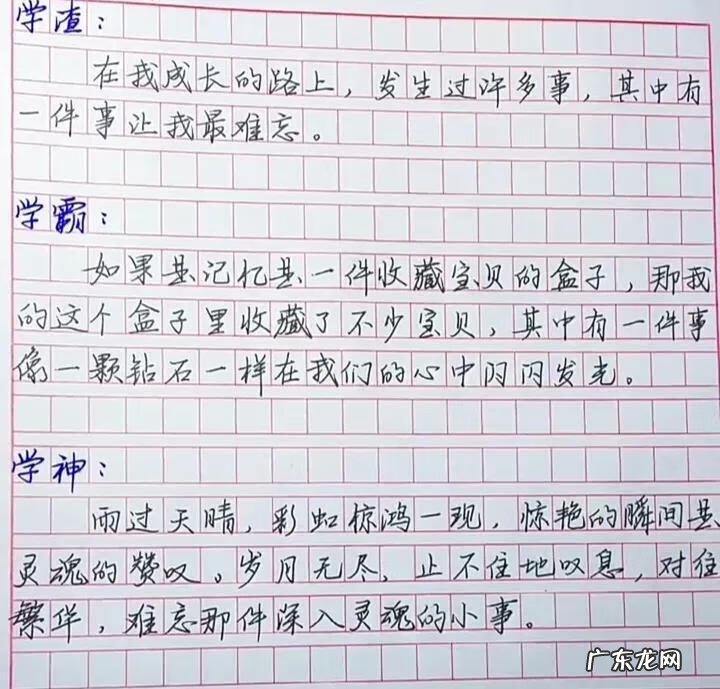 学渣：
在我成长的路上，发生过许多事，其中有
一件事让我最难忘。
学霸：
如果是记忆是一件收藏宝贝的盒子，那我
的这个盒子里收藏了不少宝贝，其中有一件事
像一颗钻石一样在我们的心中闪闪发光。
学神：
雨过天晴，彩虹惊鸿一现，惊艳的瞬间是
灵魂的赞叹。岁月无尽，止不住地叹息，对住
繁华，难忘那件深入灵魂的小事。
广东龙网